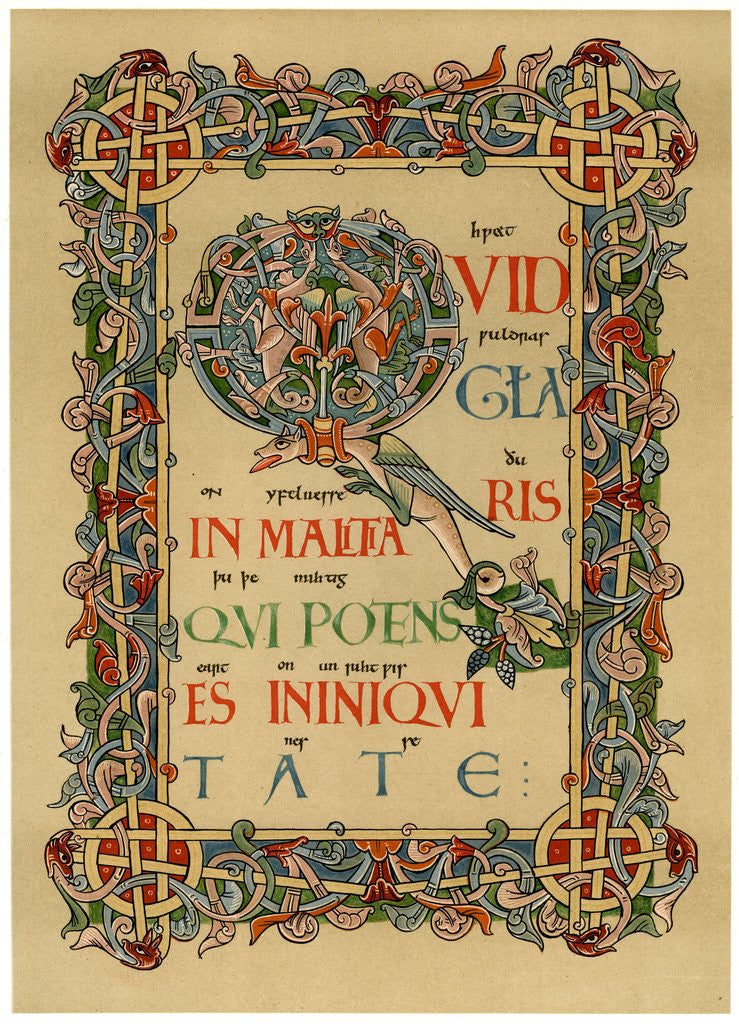 hƿæt
QVID
ƿuldras
GŁA
ðu
RIS
on yfelnesse
IN MALITIA
þu þe mihtig
QVI POTENS
eart on un rihtƿis
ES ININIQVI
nes se
TATE: